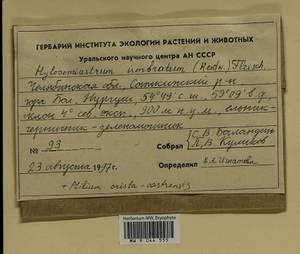 ГЕРБАРИЙ ИНСТИТУТА ЭКОЛОГИИ РАСТЕНИЙ И ЖИВОТНЫХ
Уральского научного центра АН СССР
Hylocomiastrum umbratum (Hedw.) Fleisch.
Челябинская обл. Саткинский р-н
гора Бол. Нургуш, 54°49' с.ш., 59°09' в.д.
склон 4° сев. эксп., 900 м н.у.м., ельник-
чернично-зеленомошник
№ 93
С.В. Баландин
Собрал П.В. Куликов
23 августа 1977 г.
Определил
+ Ptilium crista-castrensis
Herbarium MW, Bryophyta
MW 9 044 555